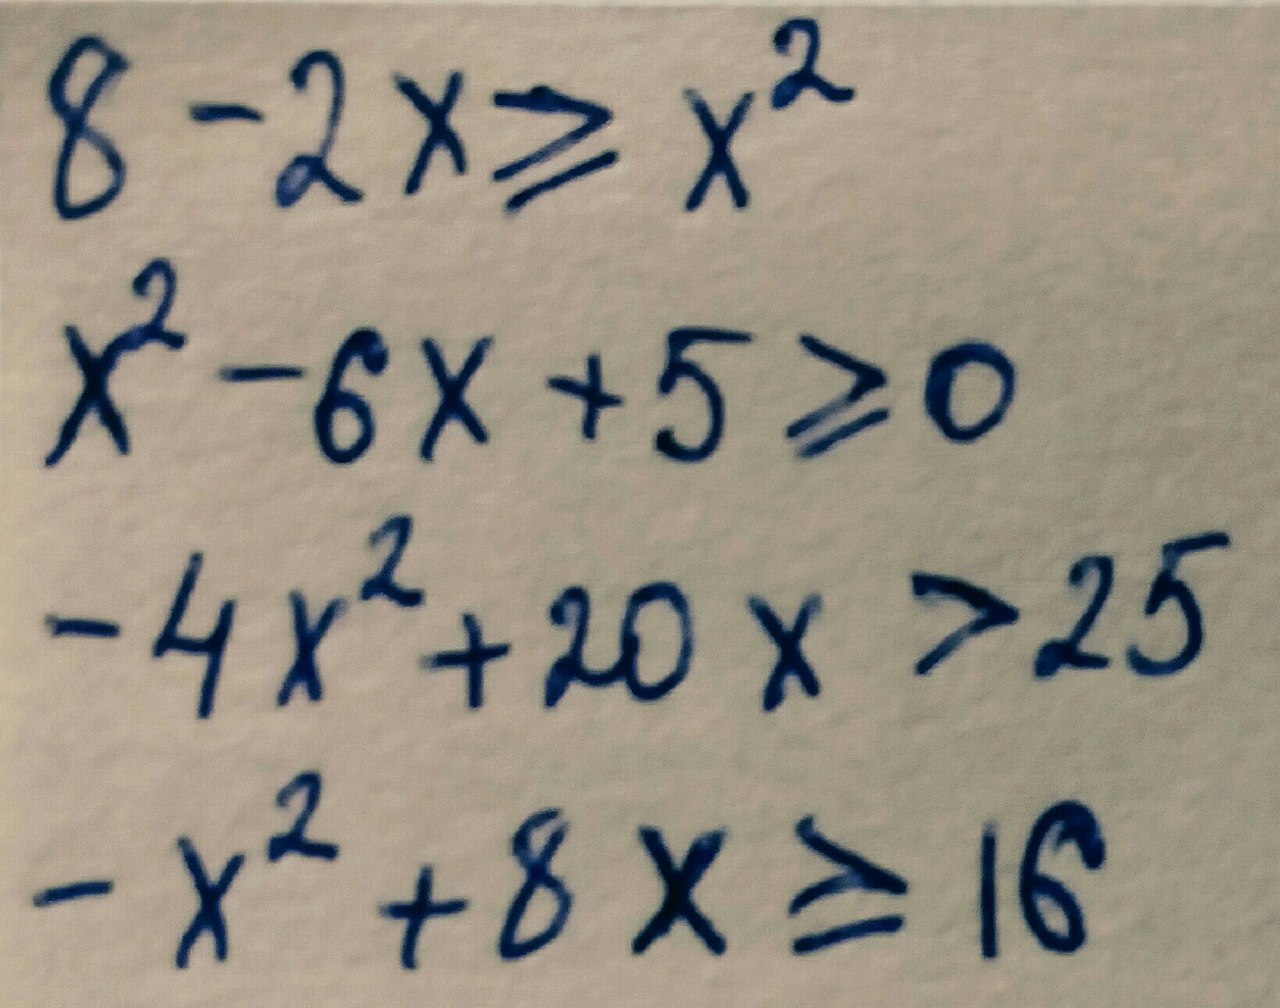 8 - 2x ≥ x²
x² - 6x + 5 ≥ 0
- 4x² + 20x > 25
- x² + 8x ≥ 16